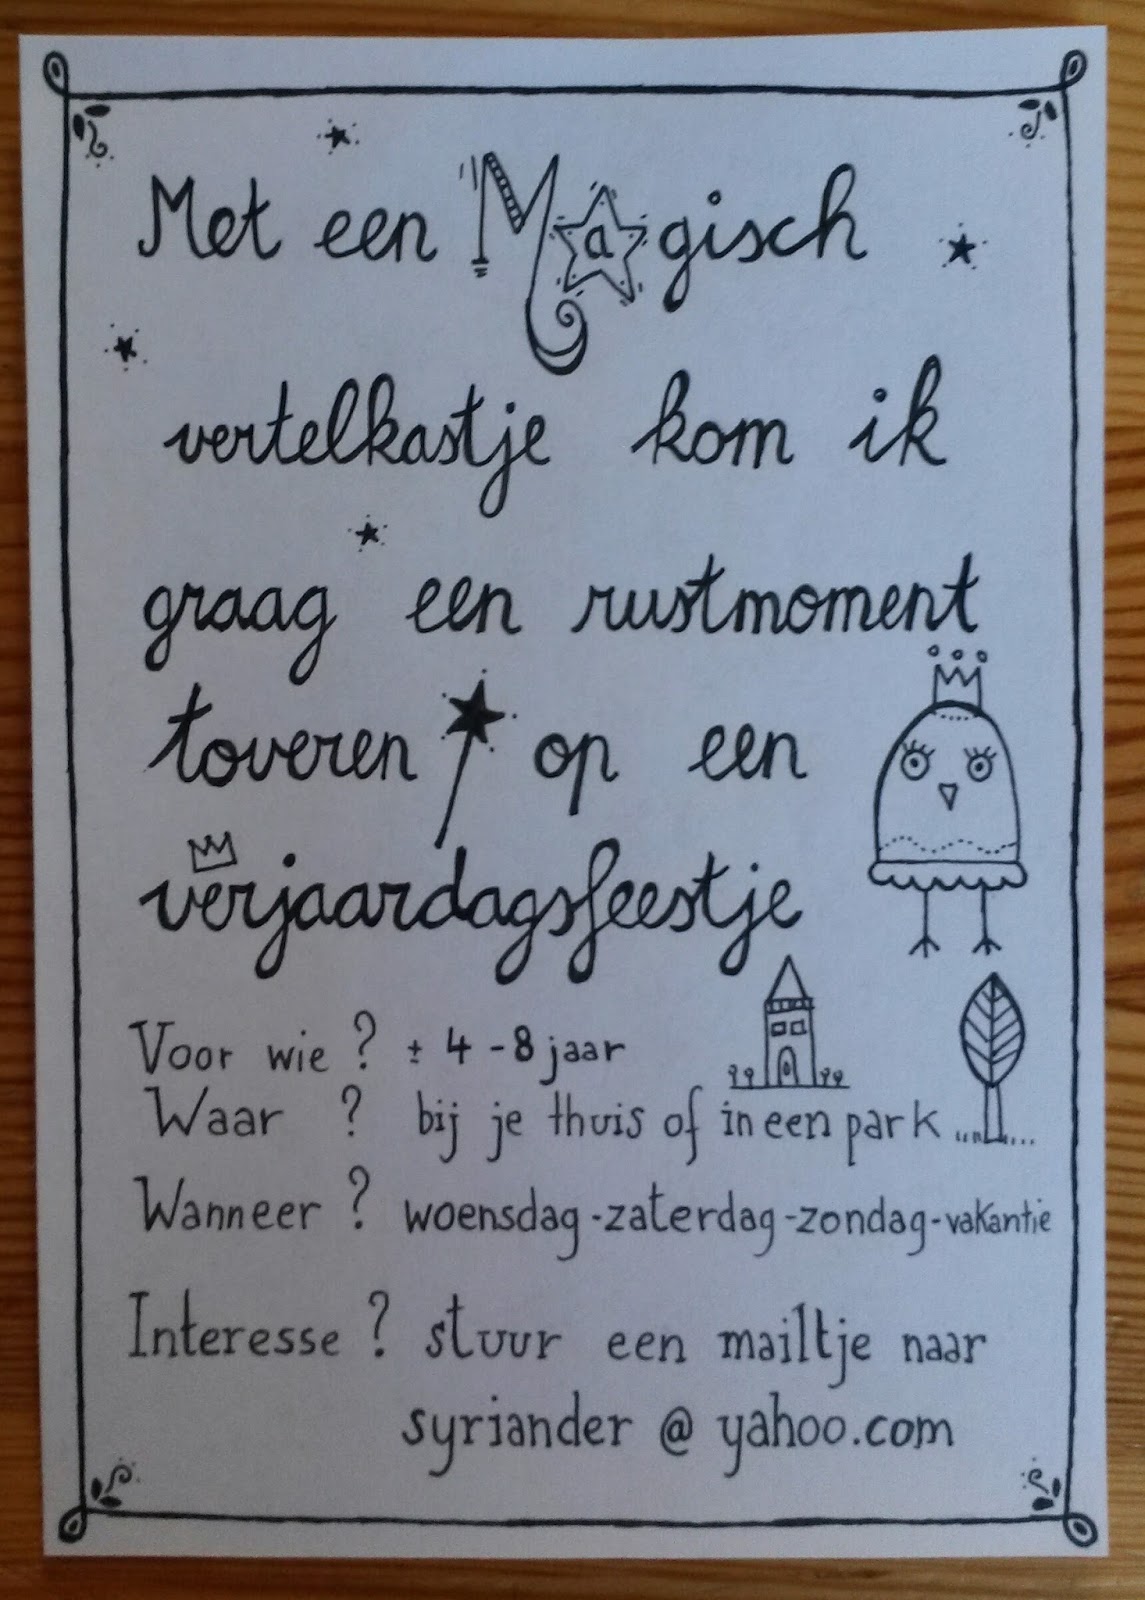 Met een Magisch
vertelkastje kom ik
graag een rustmoment
toveren op een
verjaardagsfeestje
Voor wie ? ± 4 - 8 jaar
Waar ? bij je thuis of in een park ...
Wanneer ? woensdag - zaterdag - zondag - vakantie
Interesse ? stuur een mailtje naar
syriander @ yahoo.com